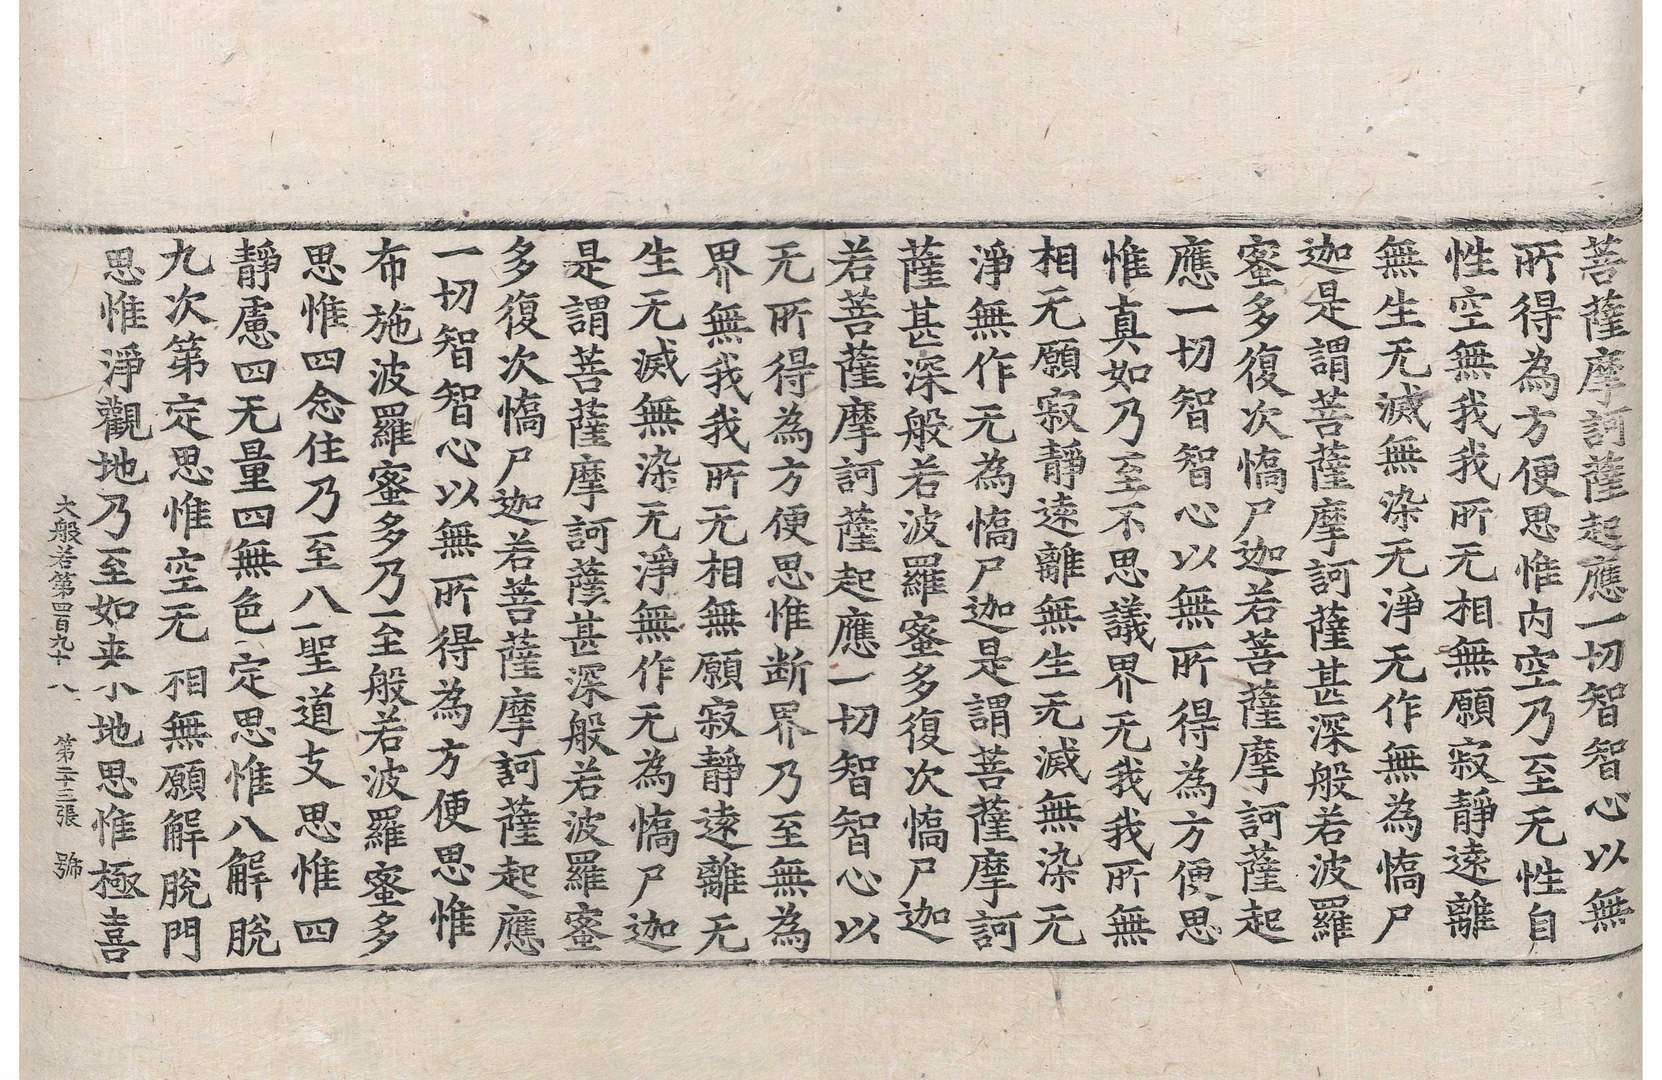 菩薩摩訶薩起應一切智智心以無
所得為方便思惟内空乃至无性自
性空無我我所无相無願寂靜遠離
無生无滅無染无淨无作無為憍尸
迦是謂菩薩摩訶薩甚深般若波羅
蜜多復次憍尸迦若菩薩摩訶薩起
應一切智智心以無所得為方便思
惟真如乃至不思議界无我我所無
相无願寂靜遠離無生无滅無染无
淨無作无為憍尸迦是謂菩薩摩訶
薩甚深般若波羅蜜多復次憍尸迦
若菩薩摩訶薩起應一切智智心以
无所得為方便思惟断界乃至無為
界無我我所无相無願寂靜遠離无
生无滅無染无淨無作无為憍尸迦
是謂菩薩摩訶薩甚深般若波羅蜜
多復次憍尸迦若菩薩摩訶薩起應
一切智智心以無所得為方便思惟
布施波羅蜜多乃至般若波羅蜜多
思惟四念住乃至八聖道支思惟四
靜慮四无量四無色定思惟八解脫
九次第定思惟空无相無願解脫門
思惟淨觀地乃至如来地思惟極喜
大般若第四百九十八 第二十三張 號